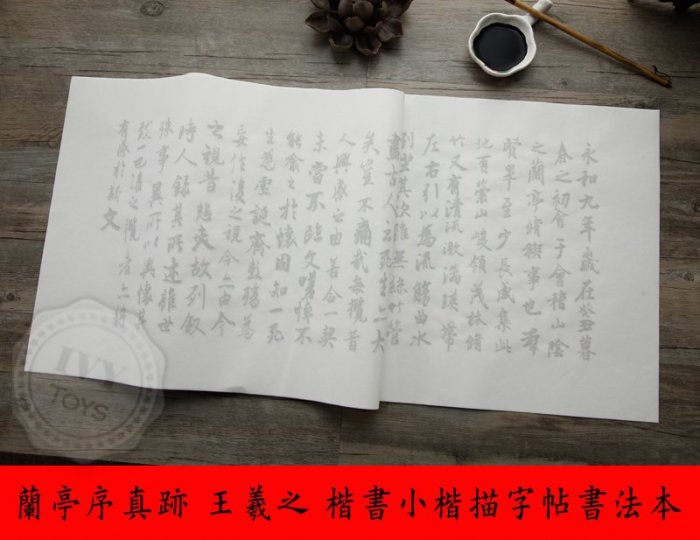 永和九年歲在癸丑暮
春之初會于會稽山陰
之蘭亭脩禊事也群
賢畢至少長咸集此
地有崇山峻領茂林脩
竹又有清流激湍暎帶
左右引以為流觴曲水
列坐其次雖無絲竹管
古人云死生亦大
矣豈不痛哉每攬昔
人興感之由若合一契
未嘗不臨文嗟悼不
能喻之於懷固知一死
生為虛誕齊彭殤為
妄作後之視今亦由今
之視昔悲夫故列敘
時人錄其所述雖世
殊事異所以興懷其
致一也後之攬者亦將
有感於斯文
IVY
TOYS
蘭亭序真跡 王羲之 楷書小楷描字帖書法本